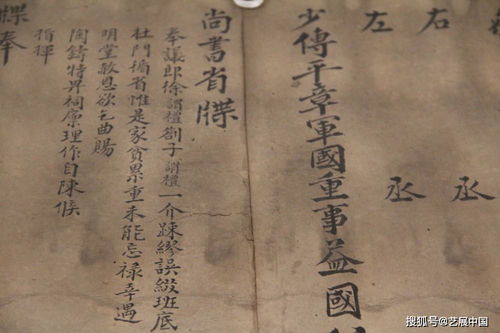 右丞
左丞
少傅平章軍國重事益國
尚書省牒
奉議郎徐謂禮劄子謂禮一介踈繆誤綴班底
杜門循省惟是家貧累重未能忘禄幸遇
明堂赦恩欲乞曲賜
陶鑄特畀祠廩理作自陳候
指揮
牒奉
搜狐号@艺展中国